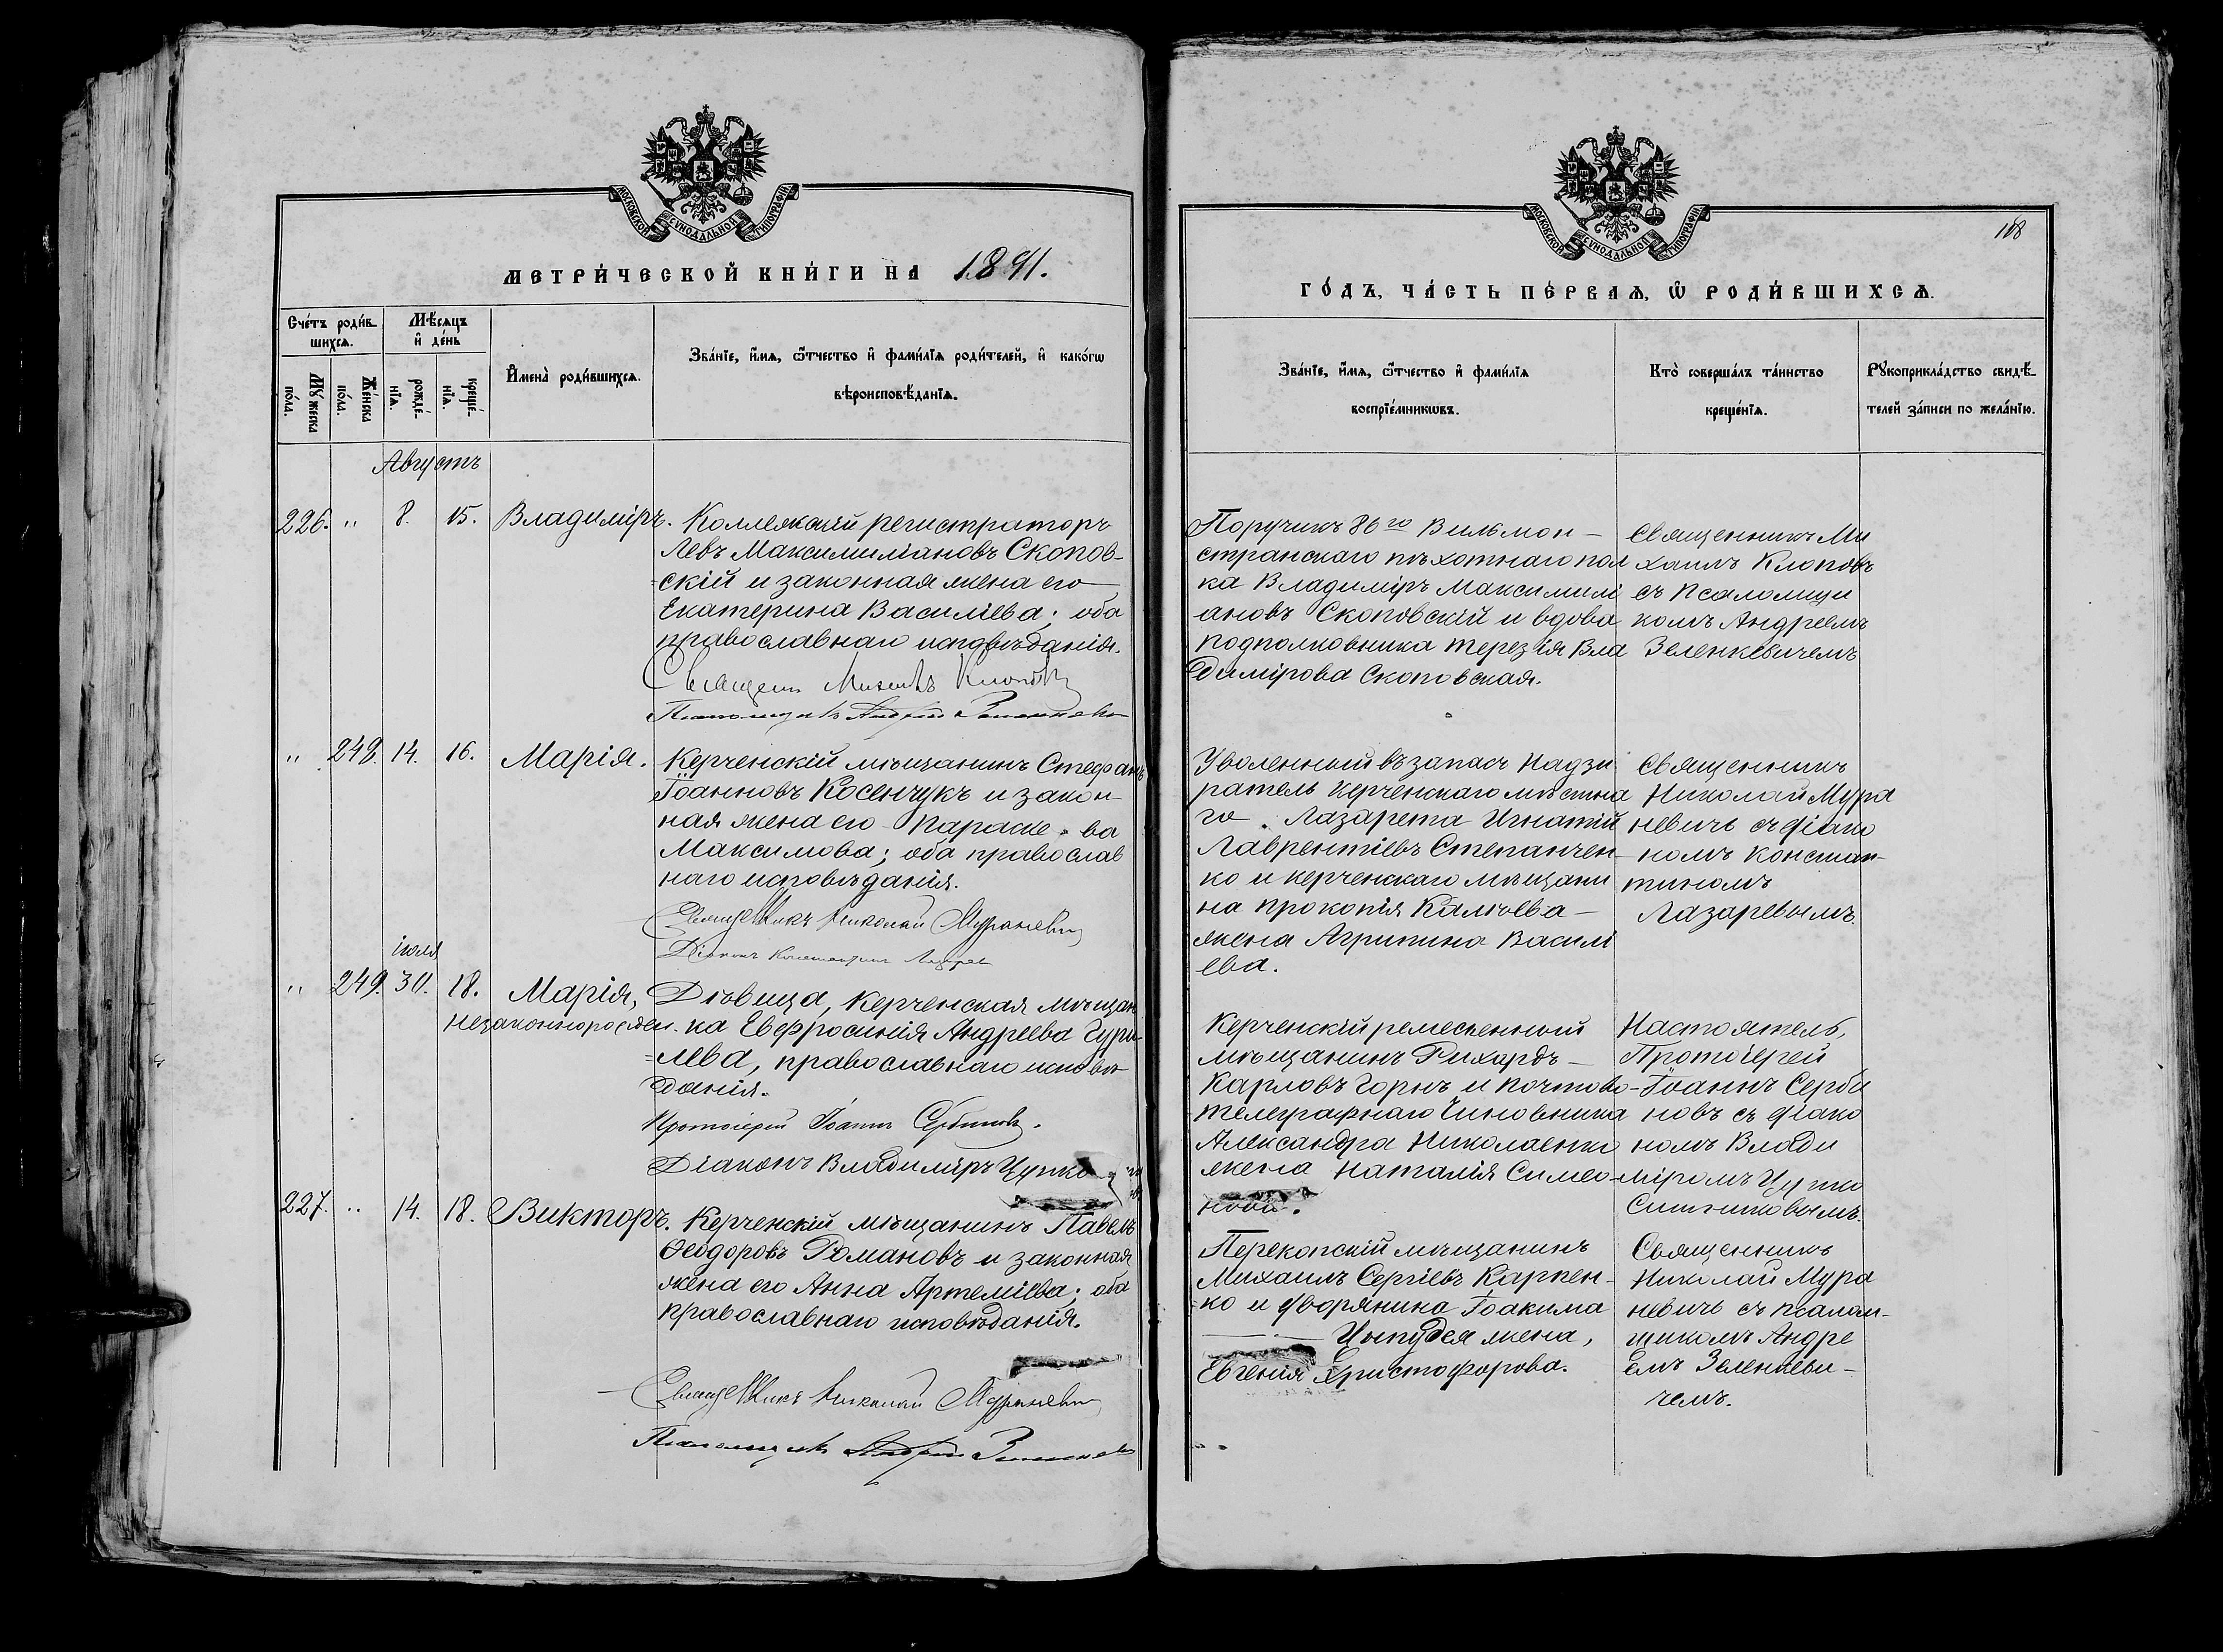 МОСКОВСКОЙ СУНОДАЛЬНОЙ ТИПОГРАФІИ
МЕТРИ́ЧЕСКОЙ КНИ́ГИ НА 1891.
Сче́тъ роди́в-
шихсѧ.
Мꙋ́жеска
по́ла.
Же́нска
по́ла.
Мѣ́сѧцъ
и҆ де́нь
рожде́-
нїѧ.
креще́-
нїѧ.
И҆мена̀ роди́вшихсѧ.
Зва́нїе, и҆́мѧ, ѻ҆́тчество и҆ фами́лїѧ роди́телей, и҆ како́гѡ
вѣроисповѣ́данїѧ.
Августъ
226. " 8. 15. Владиміръ.
Коллежскій регистраторъ
Левъ Максимиліановъ Скопов-
=скій и законная жена его
Екатерина Василіева; оба
православнаго исповѣданія.
Священ Михаилъ Клоповъ
Псаломщикъ Андрей Зеленкевич
" 248. 14. 16. Марія.
Керченскій мѣщанинъ Стефанъ
Іоанновъ Косенчукъ и закон-
ная жена его Параске-ва
Максимова; оба православ
наго исповѣданія.
Священникъ Николай Мураневич
Діаконъ Константин Лазарев
іюля
" 249. 30. 18. Марія,
незаконнорожден.
Дѣвица, Керченская мѣщан
ка Евфросинія Андреева Гури-
=лева, православнаго исповѣ
данія.
Протоіерей Іоаннъ Сербиновъ.
Діаконъ Владиміръ Цупко
227. " 14. 18. Викторъ.
Керченскій мѣщанинъ Павелъ
Ѳеодоровъ Романовъ и законная
жена его Анна Артеміева; оба
православнаго исповѣданія.
Священникъ Николай Мураневич
Псаломщикъ Андрей Зеленкев
МОСКОВСКОЙ СУНОДАЛЬНОЙ ТИПОГРАФІИ
ГО́ДЪ, ЧА́СТЬ ПЕ́РВАѦ, Ѽ РОДИ́ВШИХСѦ.
Зва́нїе, и҆́мѧ, ѻ҆́тчество и҆ фами́лїѧ
воспрїе́мникѡвъ.
Кто̀ соверша́лъ та́инство
креще́нїѧ.
Рꙋкоприкла́дство свидѣ́-
телей за́писи по жела́нїю.
Поручикъ 86го Вильмон-
странскаго пѣхотнаго пол
ка Владиміръ Максимилі
ановъ Скоповскій и вдова
подполковника Терезія Вла
димірова Скоповская.
Священникъ Ми
хаилъ Клоповъ
съ псаломщи
комъ Андреемъ
Зеленкевичемъ
Уволенный въ запасъ Надзи
ратель Керченскаго мѣстна
го Лазарета Игнатій
Лаврентіевъ Степанчен-
ко и керченскаго мѣщани
на Прокопія Калюева-
жена Агрипина Василі
ева.
Священникъ
Николай Мура
невичъ съ діако
номъ Констан-
тиномъ
Лазаревымъ.
Керченскій ремесленный
мѣщанинъ Рихардъ-
Карловъ Горнъ и почтово-
телеграфнаго чиновника
Александра Николаенко
жена Наталія Симео-
нова.
Настоятель,
Протоіерей
Іоаннъ Серби
новъ съ діако
номъ Влади
міромъ Цупко
Ситниковымъ.
Перекопскій мѣщанинъ
Михаилъ Сергіевъ Карпен-
ко и дворянина Іоакима
жена,
Евгенія Христофорова.
Священникъ
Николай Мура
невичъ съ псалом-
щикомъ Андре
емъ Зеленкеви-
чемъ.